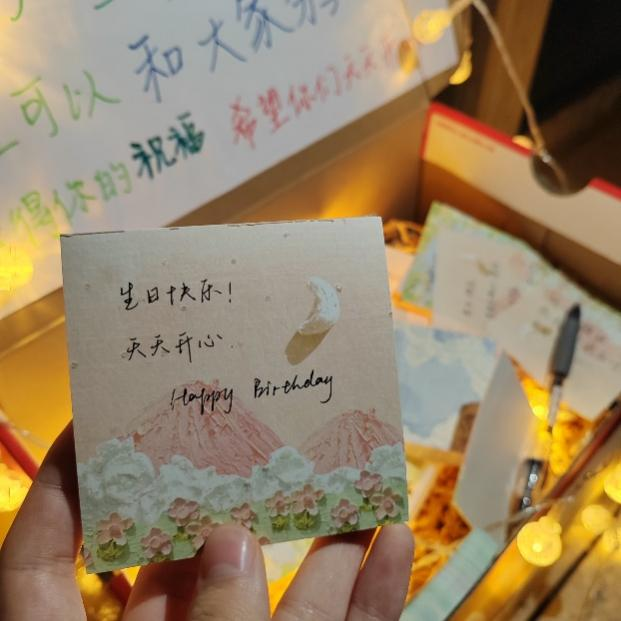 和大家
可以
希望你们天天
你的祝福
生日快乐!
天天开心.
Happy Birthday